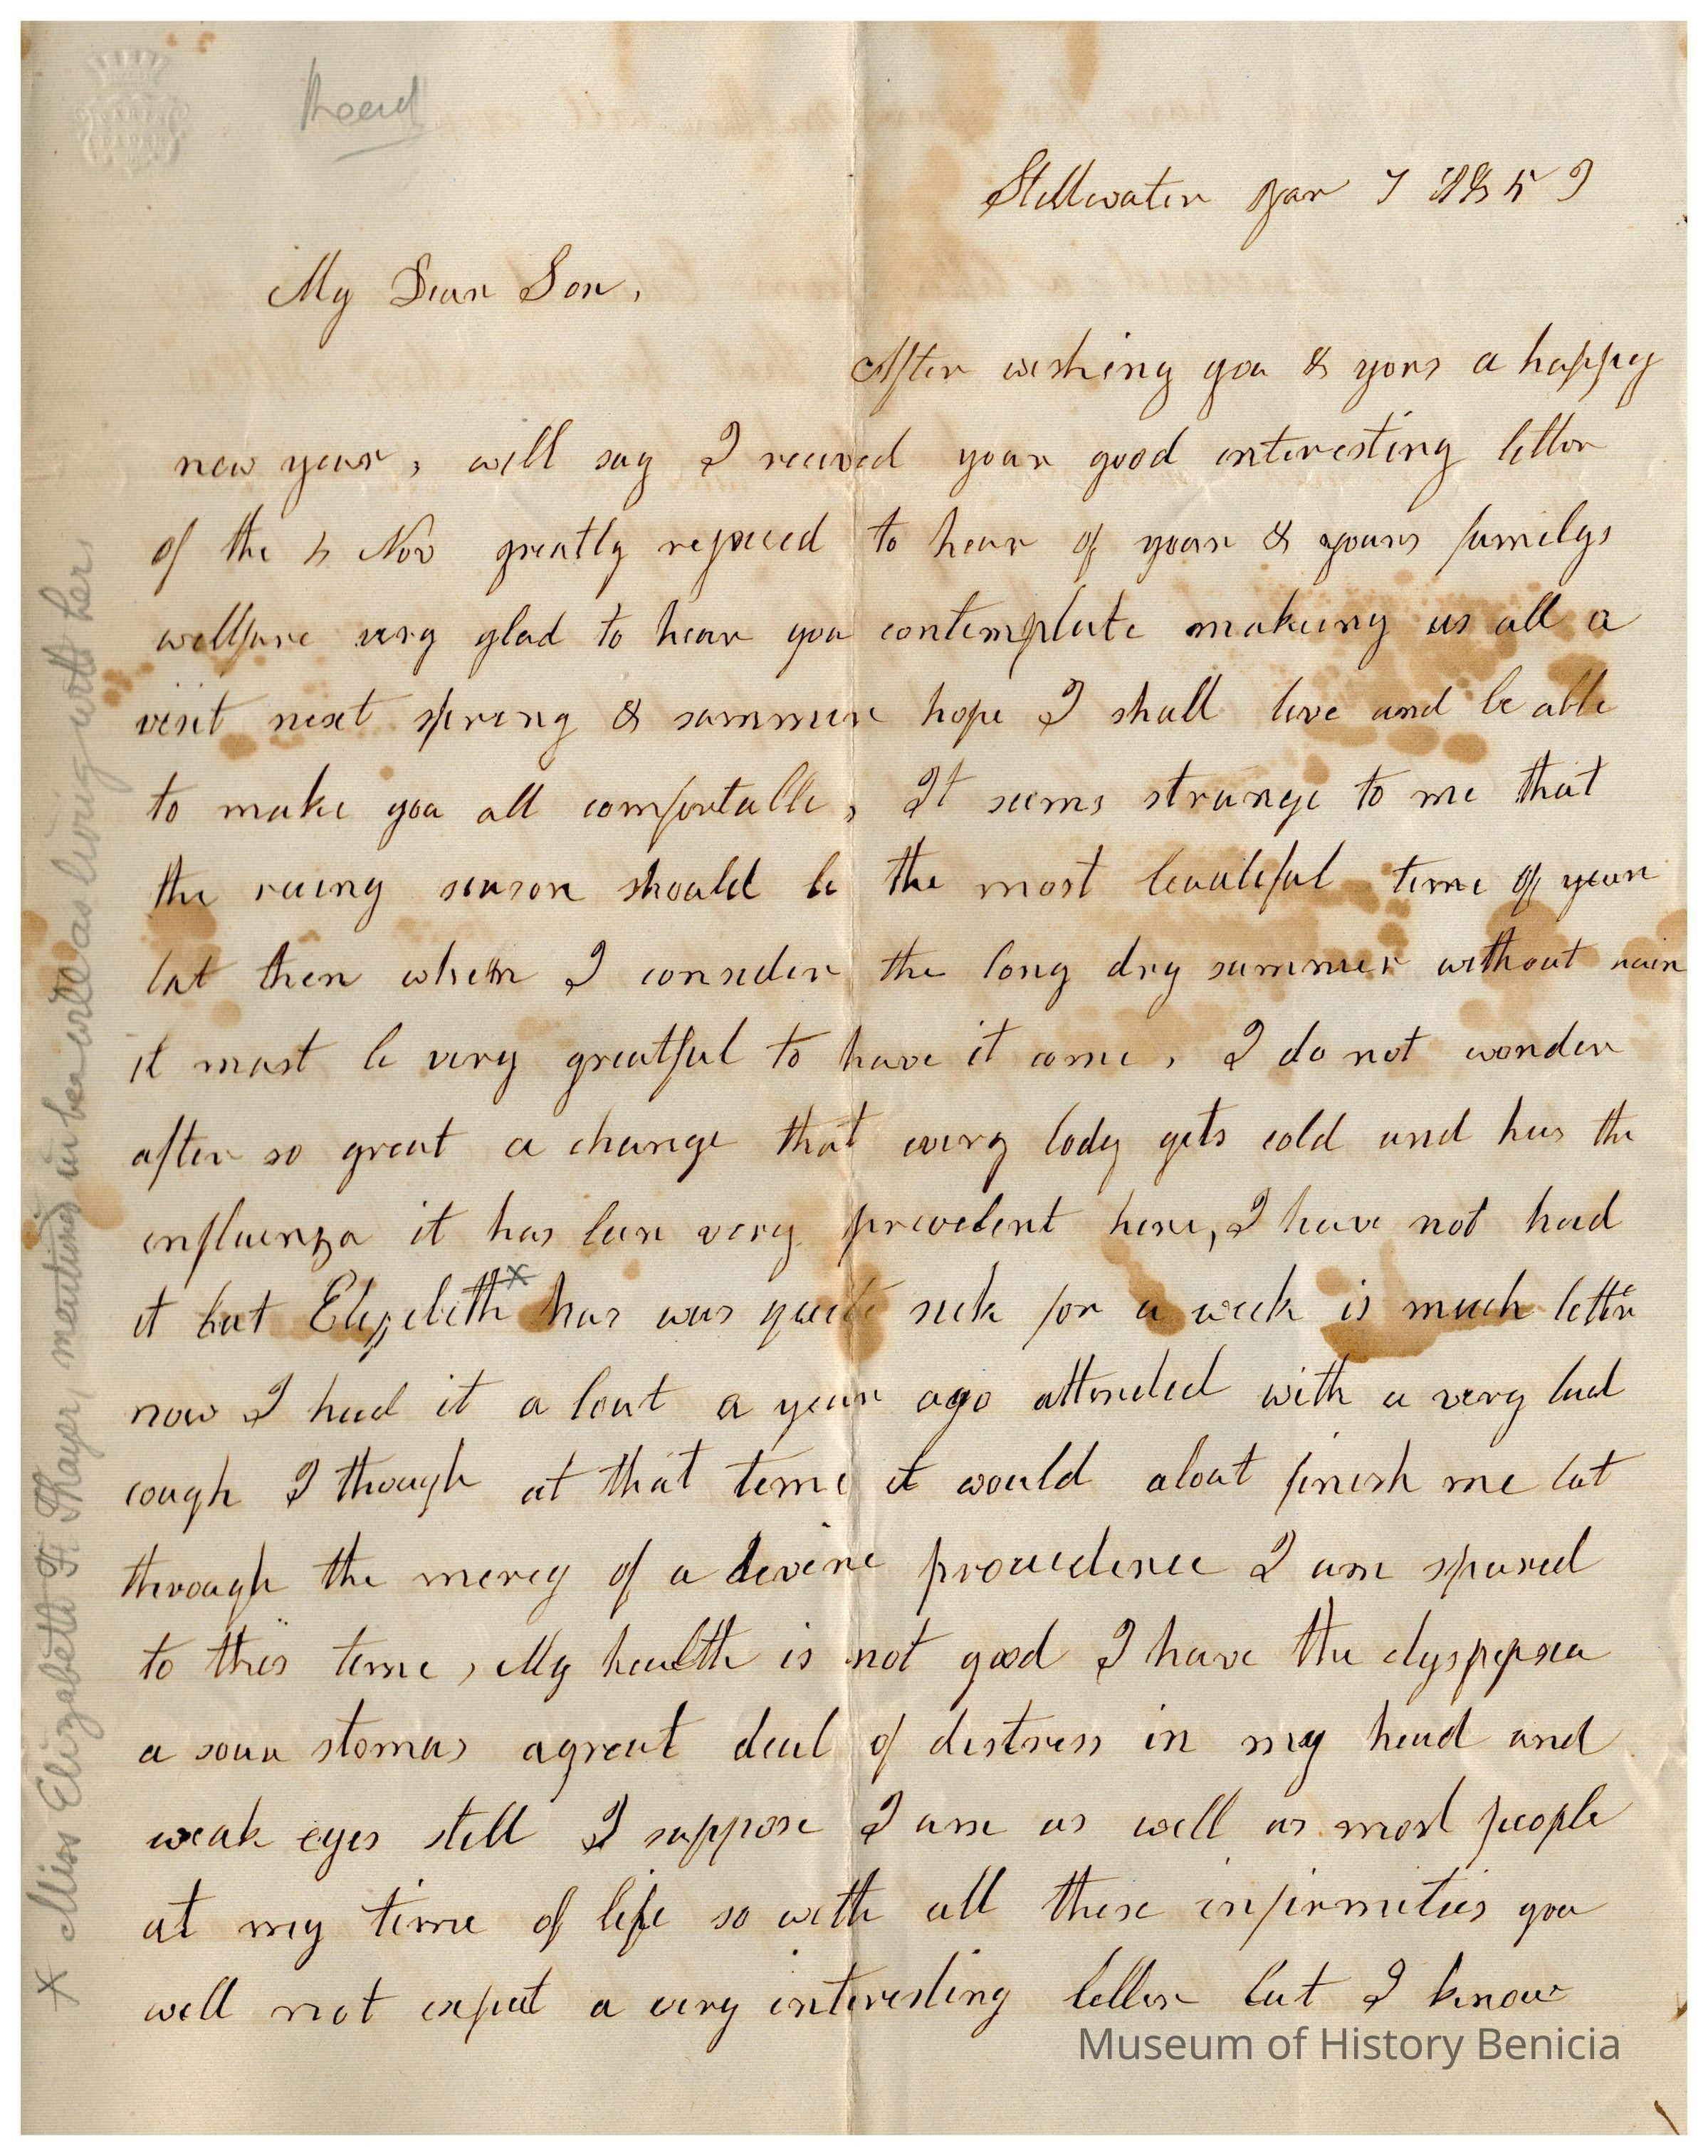 Read
Stillwater Jan 7 1859
My Dear Son,
After wishing you & yors a happy
new year, will say I received your good interesting letter
of the 4 Nov greatly rejoiced to hear of your & yours familys
wellfare very glad to hear you contemplate making us all a
visit next spring & summer hope I shall live and be able
to make you all comfortable, It seems strange to me that
the raing season should be the most beautiful time of year
but then when I consider the long dry summer without rain
it must be very greatful to have it come, I do not wonder
after so great a change that every body gets cold and has the
influinza it has been very prevelent here, I have not had
it but Elizebeth x has was quite sick for a week is much better
now I had it a bout a year ago attended with a very bad
cough I though at that time it would about finish me but
through the mercy of a devine providence I am spared
to this time, My health is not good I have the dyspepsia
a sour stomas agreat deal of distress in my head and
weak eyes still I suppose I am as well as most people
at my time of life so with all these infirmities you
will not expect a very interesting letter but I know
x Miss Elizabeth F. Thayer, mentioned in her will was living with her
Museum of History Benicia